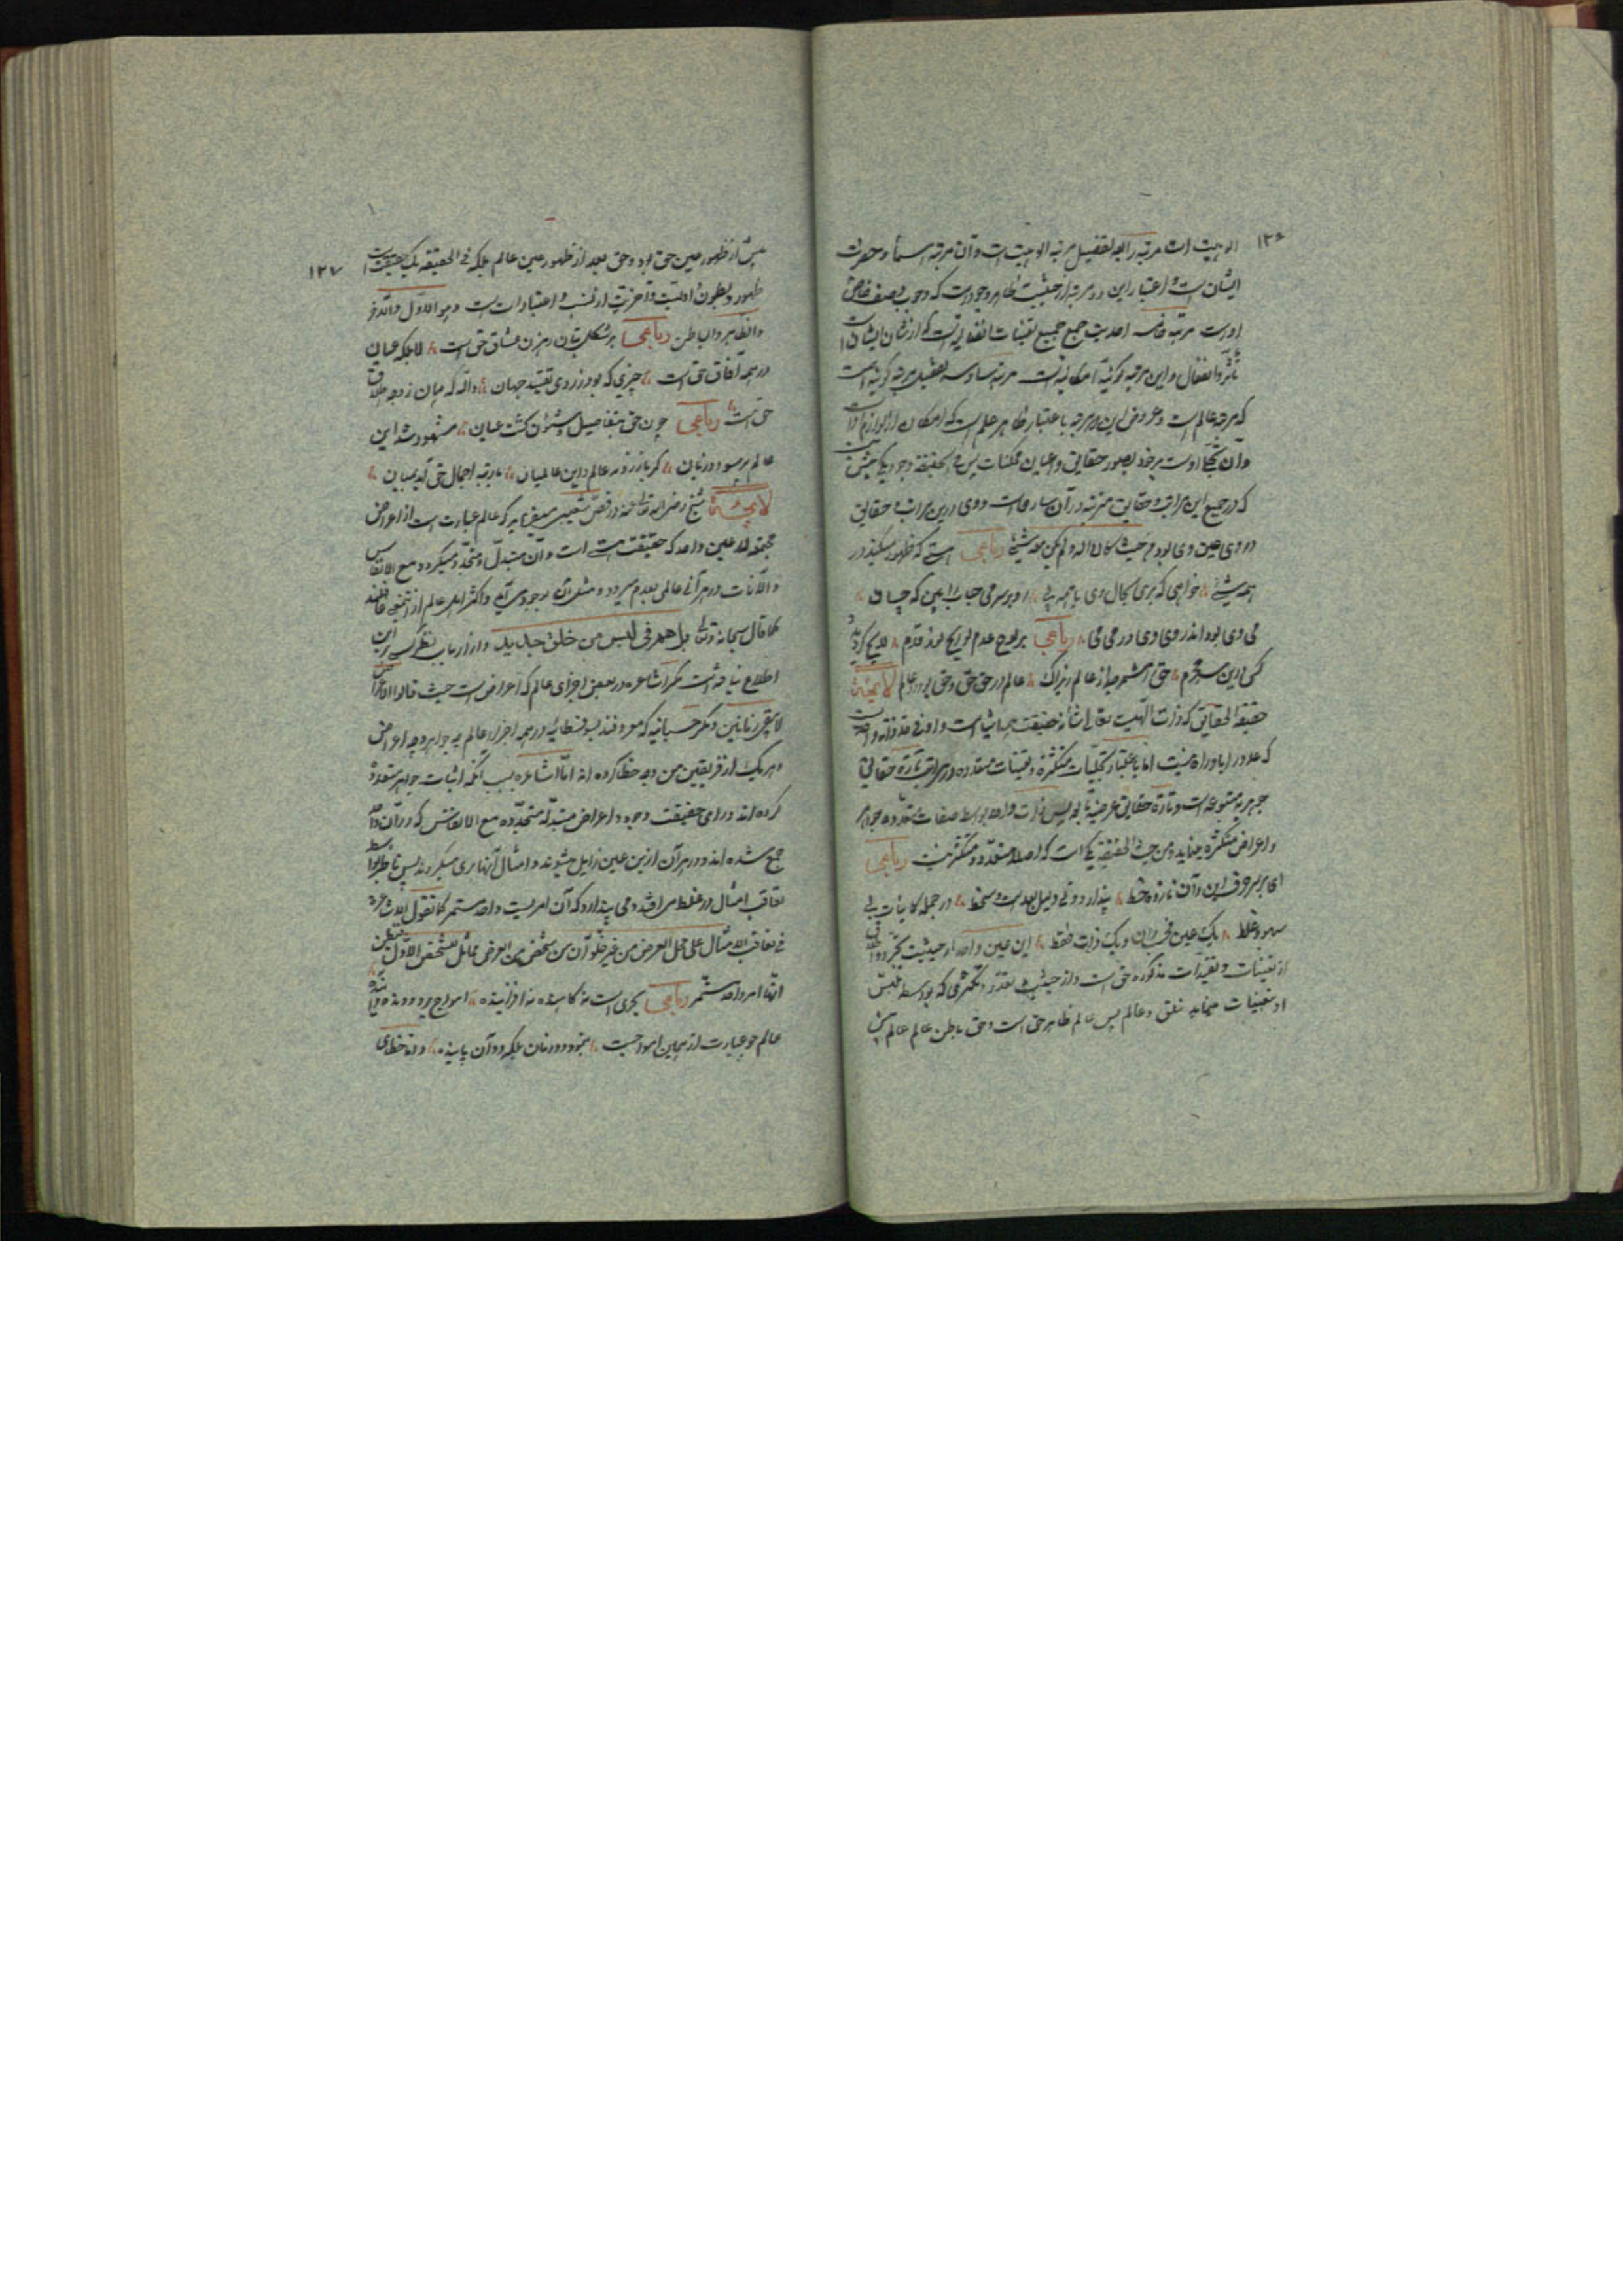 ۱۲۶
الوهیت است مرتبه رابعه تفصیل مرتبه الوهیت است و آن مرتبه اسما و حضرت
ایشان است و اعتبار این دو مرتبه از حیثیت ظاهر وجود است که وجوب وصف خاص
اوست مرتبه خامسه احدیت جمع جمیع تعینات انفعالیه است که از شان ایشان است
تأثر و انفعال و این مرتبه کونیه امکانیه است مرتبه سادسه تفصیل مرتبه کونیه است
که مرتبه عالم است و عروض این دو مرتبه باعتبار ظاهر علم است که امکان از لوازم اوست
و آن تجلی اوست بر خود بصور حقایق و اعیان ممکنات پس فی الحقیقه وجود یکی بیش نیست
که در جمیع این مراتب و حقایق مترتبه در آن ساریست و وی در این مراتب و حقایق
در وی عین وی بودند حیث کان الله و لم یکن معه شیء رباعی هستی که ظهور میکند در
همه شیء خواهی که بری بحال وی با همه پی رو بر سر می حباب را بین که چسان
می وی بود اندر وی و وی در می می رباعی بر لوح عدم لوایح نور قدم لایح گردید
کس درین سر محرم حق را مشمر جدا ز عالم زیراک عالم در حق حق و حق بود در عالم لایحه
حقیقة الحقایق که ذات الهیست تعالی شانه حقیقت همه اشیا است و او فی حد ذاته واحدیست
که عدد را باو راه نیست اما باعتبار تجلیات متکثره و تعینات متعدده در مراتب تارة حقایق
جوهریه متبوعه است و تارة حقایق عرضیه تابعه پس ذات واحد بواسطه صفات متعدده جواهر
و اعراض متکثره مینماید و من حیث الحقیقة یکی است که اصلا متعدد و متکثر نیست رباعی
ای بر سر حرف این و آن نازده خط پندار دوئی دلیل بعد است و سخط در جمله کاینات بی
سهو و غلط یک عین فحسب دان و یک ذات فقط این عین واحد از حیثیت تجرد و اطلاق
از تعینات و تقیدات مذکوره حق است و از حیثیت تعدد و تکثری که بواسطه تلبس
او بتعینات مینماید خلق و عالم پس عالم ظاهر حق است و حق باطن عالم عالم پیش
۱۲۷
پیش از ظهور عین حق بود و حق بعد از ظهور عین عالم بلکه فی الحقیقه یک حقیقت است
ظهور و بطون و اولیت و آخریت از نسب و اعتبارات است و هو الاول و الآخر
و الظاهر و الباطن رباعی بر شکل بتان رهزن عشاق حق است لا بلکه عیان
در همه آفاق حق است چیزی که بود ز روی تقیید جهان والله که همان ز وجه اطلاق
حق است رباعی چون حق بتفاصیل و شئون گشت عیان مشهود شد این
عالم پر سود و زیان گر باز روند عالم و این عالمیان با رتبه اجمال حق آید بمیان
لایحه شیخ رضی الله تعالی عنه در فص شعیبی میفرماید که عالم عبارت است از اعراض
مجتمعه در عین واحد که حقیقت هستی است و آن متبدل و متجدد میگردد مع الانفاس
و الآنات در هر آنی عالمی بعدم میرود و مثل آن بوجود می آید و اکثر اهل عالم از این معنی غافلند
کما قال سبحانه و تعالی بل هم فی لبس من خلق جدید و از ارباب نظر کسی بر این
اطلاع نیافته است مگر اشاعره در بعض اجزای عالم که اعراض است حیث قالوا الاعراض
لا یبقی زمانین و مگر حسبانیه که معروفند بسوفسطائیه در همه اجزاء عالم چه جواهر و چه اعراض
و هر یک از فریقین من وجه خطا کرده اند اما اشاعره بسبب آنکه اثبات جواهر متعدده
کرده اند ورای حقیقت وجود و اعراض متبدله متجدده مع الانفاس که در آن واحد
جمع شده اند و در هر آن ازین عین زایل میشوند و امثال آنها بری میگردند پس ناظر بواسطه
تعاقب امثال در غلط می افتد و می پندارد که آن امریست واحد مستمر کما تقول الاشاعرة
فی تعاقب الامثال علی محل العرض من غیر خلو آن من شخص من العرض مماثل للشخص الاول فیظن
انها امر واحد مستمر رباعی بحری است نه کاهنده نه افزاینده امواج برو رونده و آینده
عالم چو عبارت از همین امواجست نبود دو زمان بلکه دو آن پاینده و اما خطای